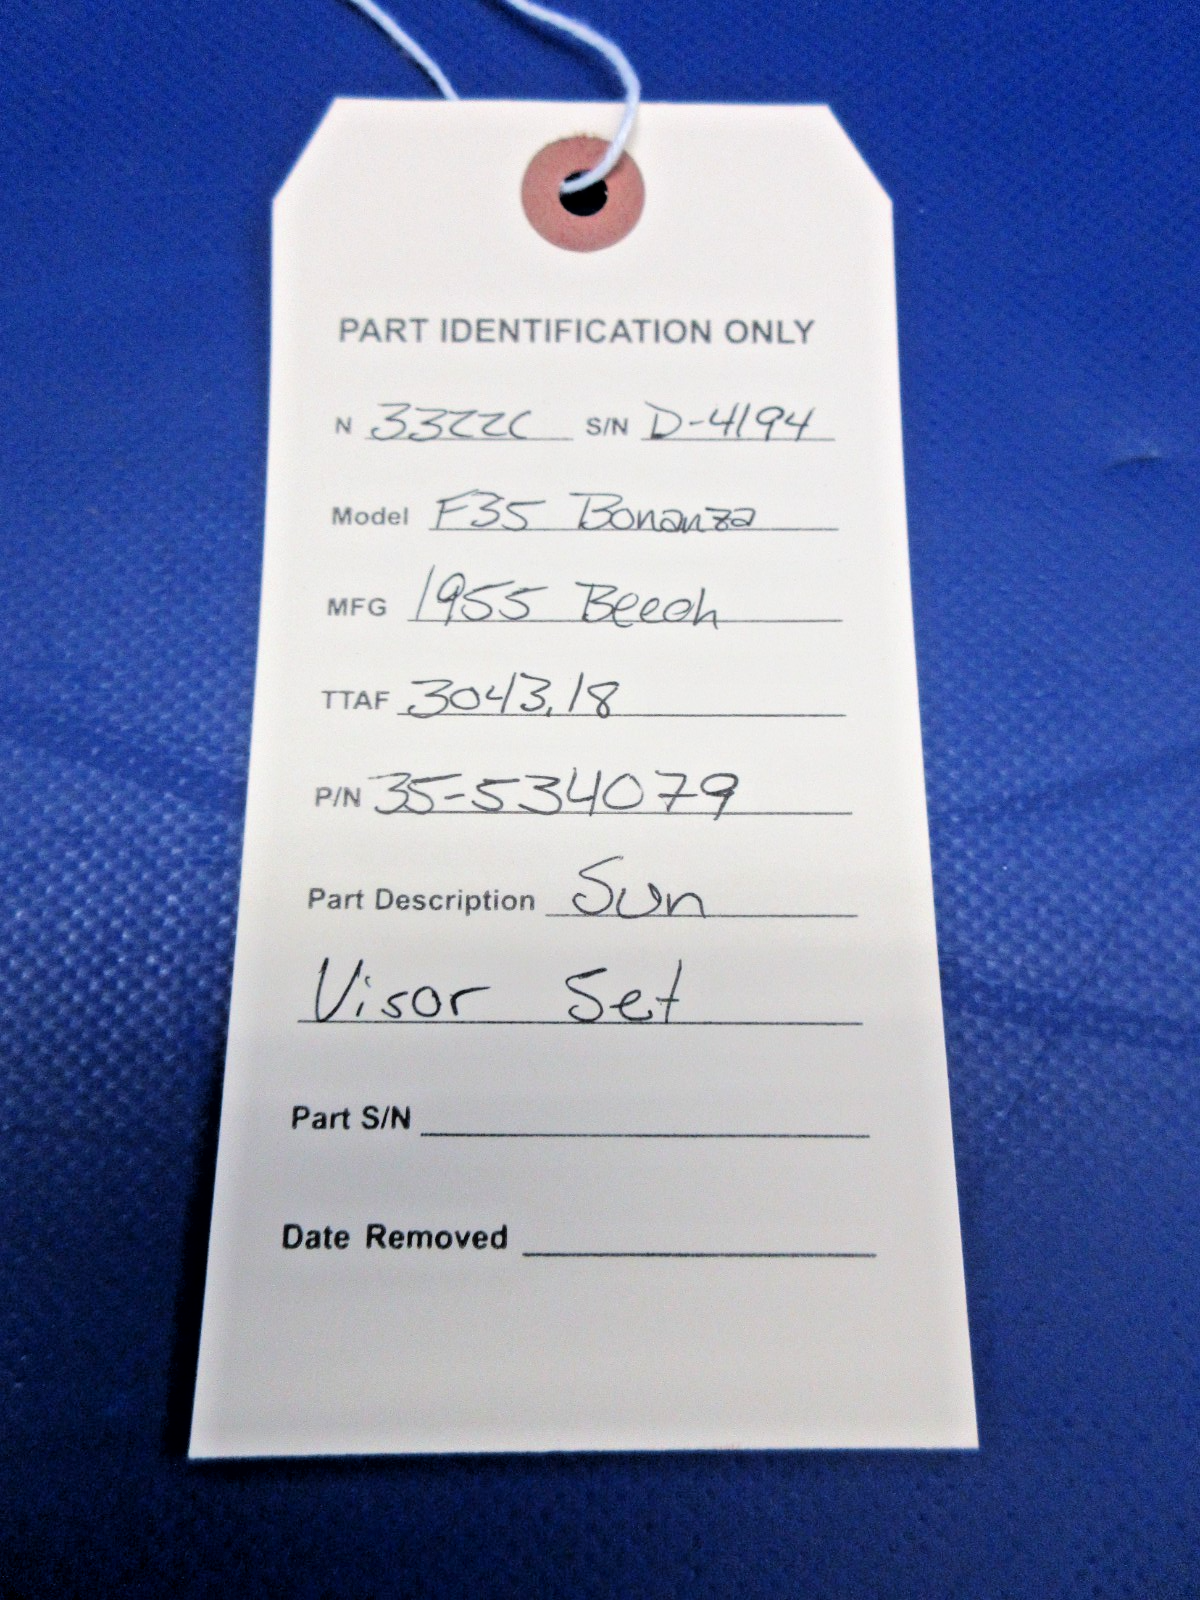 PART IDENTIFICATION ONLY
N 3322C S/N D-4194
Model F35 Bonanza
MFG 1955 Beech
TTAF 3043.18
P/N 35-534079
Part Description Sun
Visor Set
Part S/N
Date Removed